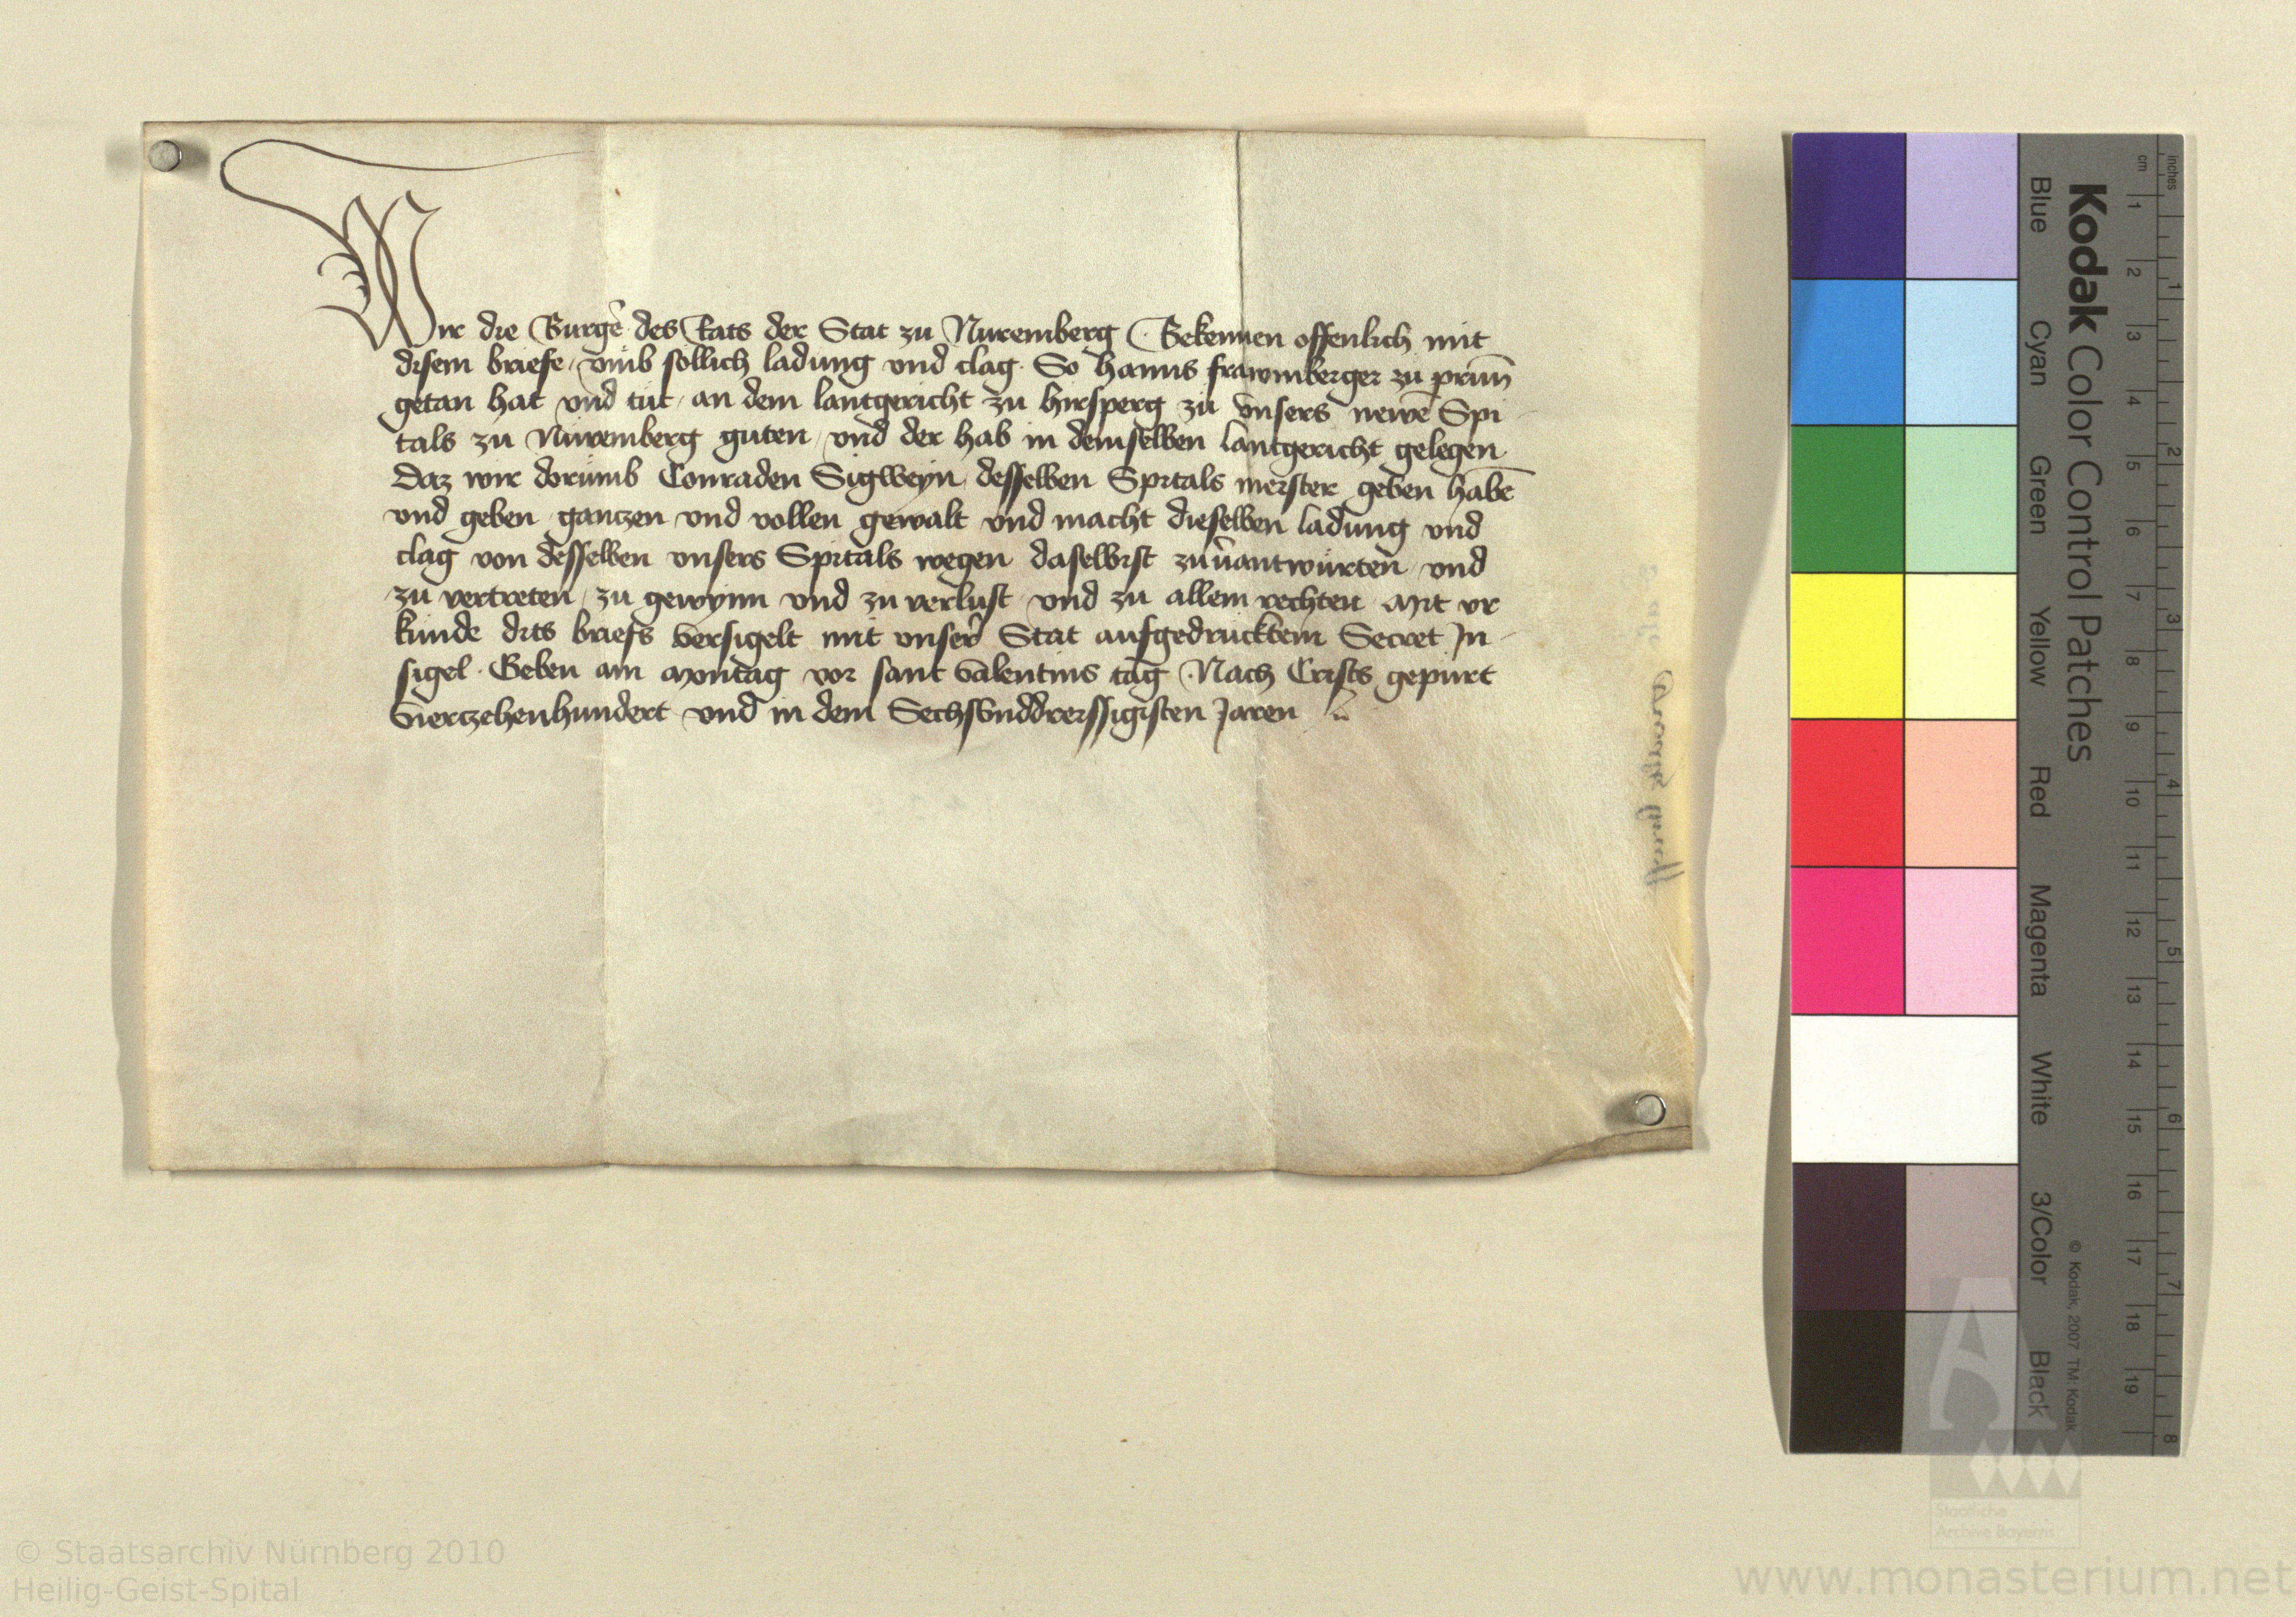 Wir die Burg̉e des Rats der Stat zu Nuremberg Bekennen offenlich mit
disem briefe / vmb sollich ladung vnd clag So Hanns frawmberger zu prun̄
getan hat vnd tut / an dem lantgericht zu Hirsperg zu vnsers newē Spi
tals zu Nuremberg guten / vnd der hab in demselben lantgericht gelegen
Daz wir dorumb Conraden Sigweyn desselben Spitals meister geben habē
vnd geben ganczen vnd vollen gewalt vnd macht dieselben ladung vnd
clag von desselben vnsers Spitals wegen daselbist zuv̉antwurten vnd
zu vertreten / zu gewynn vnd zu verlust vnd zu allem rechten Mit vr
kunde dits briefs versigelt mit vnser̉ Stat aufgedrucktem Secret In
sigel · Geben am Montag vor sant Valentins tag · Nach Crists gepurt
vierczehenhundert vnd in dem Sechsvnddreissigisten Jaren
Kodak Color Control Patches
Blue Cyan Green Yellow Red Magenta White 3/Color Black
© Kodak, 2007 TM: Kodak
inches 1 2 3 4 5 6 7 8
cm 1 2 3 4 5 6 7 8 9 10 11 12 13 14 15 16 17 18 19
Staatliche
Archive Bayerns
© Staatsarchiv Nürnberg 2010
Heilig-Geist-Spital
www.monasterium.net